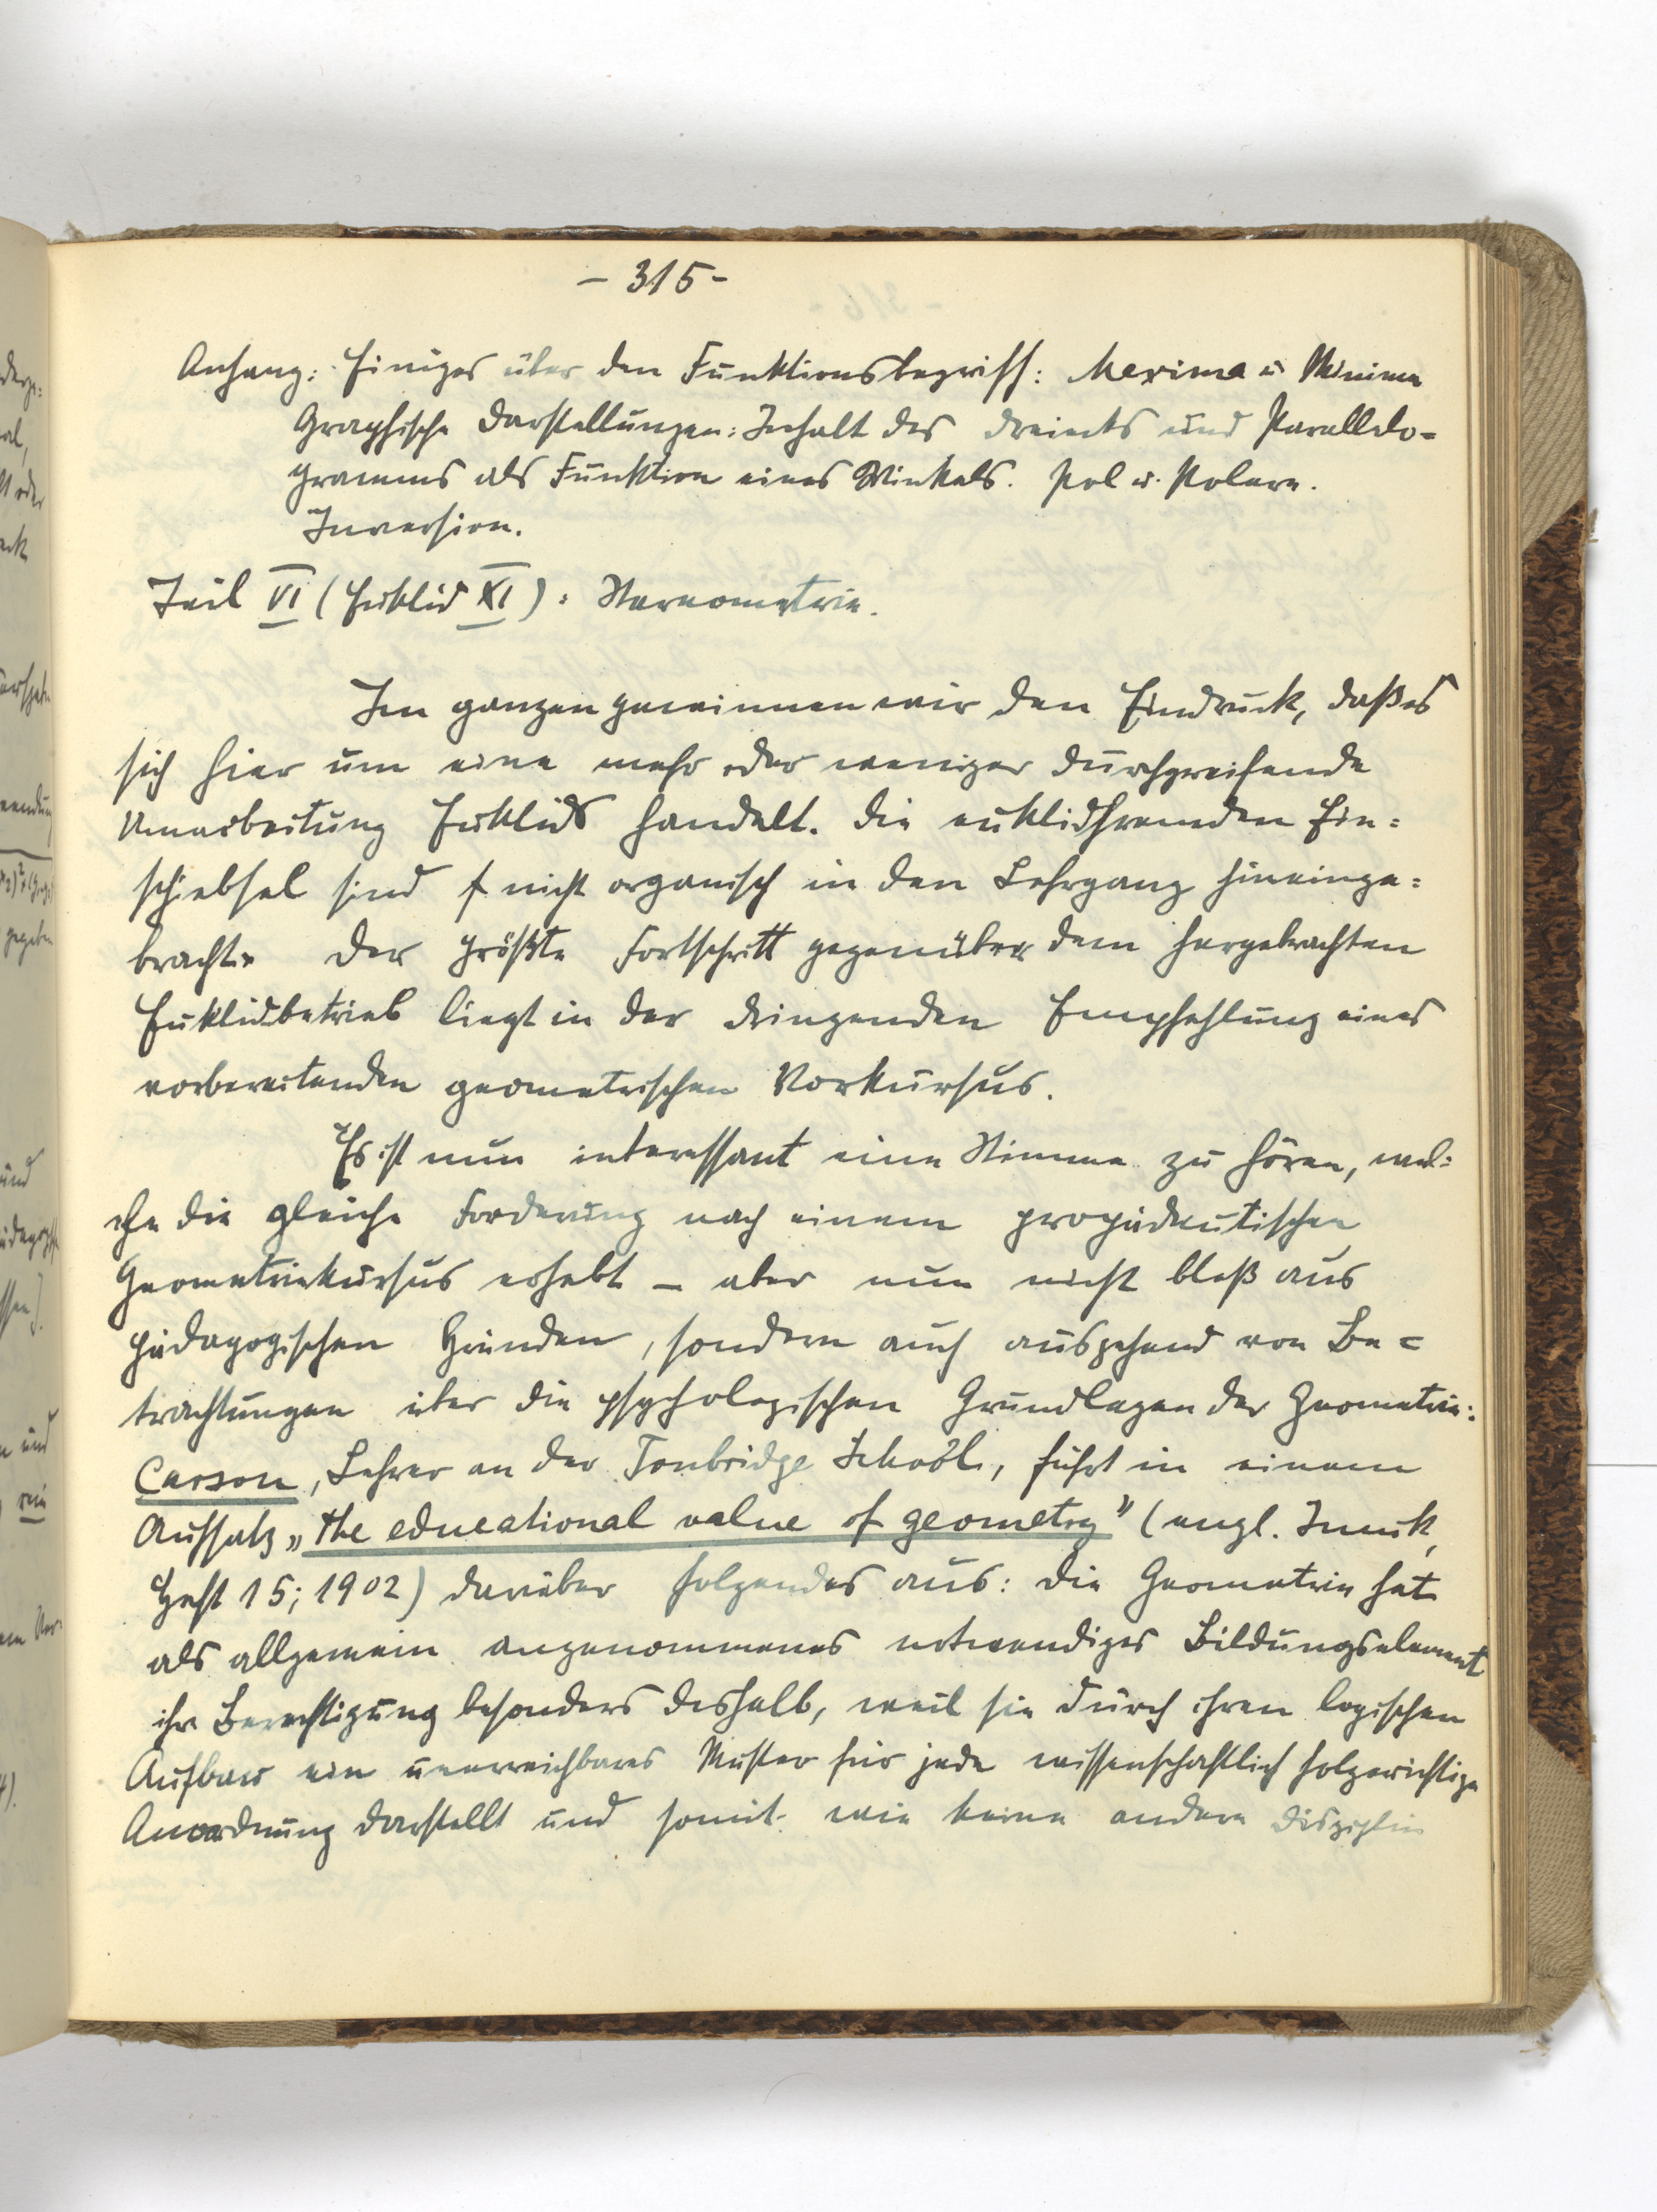 - 315 -
Anhang: Einiges über den Funktionsbegriff: Maxima u. Minima
Graphische Darstellungen: Inhalt des Dreiecks und Parallelo-
gramms als Funktion eines Winkels. Pol u. Polare.
Inversion.
Teil VI (Euklid XI): Stereometrie.
Im ganzen gewinnen wir den Eindruck, daß es
sich hier um eine mehr oder weniger durchgreifende
Umarbeitung Euklids handelt. Die euklidfremden Ein-
schiebsel sind nicht organisch in den Lehrgang hineinge-
bracht. Der größte Fortschritt gegenüber dem hergebrachten
Euklidbetrieb liegt in der dringenden Empfehlung eines
vorbereitenden geometrischen Vorkursus.
Es ist nun interessant eine Stimme zu hören, wel-
che die gleiche Forderung nach einem propädeutischen
Geometriekursus erhebt - aber nun nicht bloß aus
pädagogischen Gründen, sondern auch ausgehend von Be-
trachtungen über die psychologischen Grundlagen der Geometrie:
Carson, Lehrer an der Tonbridge School, führt in einem
Aufsatz „the educational value of geometry" (engl. Imuk,
Heft 15; 1902) darüber folgendes aus: Die Geometrie hat
als allgemein angenommenes notwendiges Bildungselement
ihre Berechtigung besonders deshalb, weil sie durch ihren logischen
Aufbau ein unerreichbares Muster für jede wissenschaftlich folgerichtige
Anordnung darstellt und somit wie keine andere Disziplin